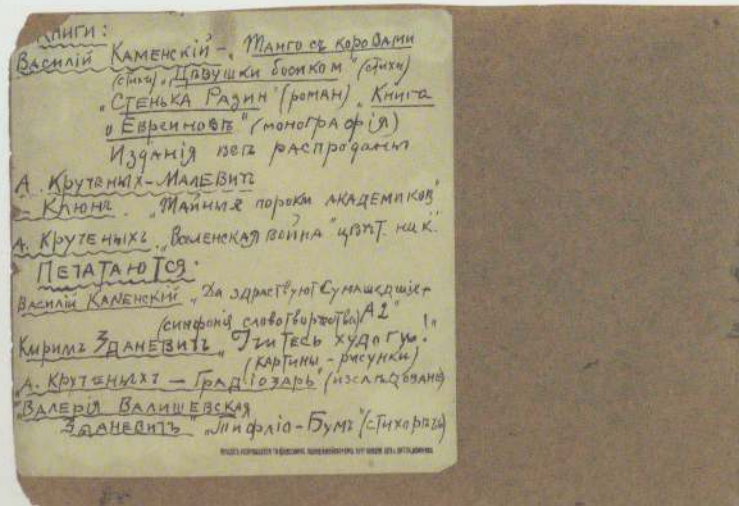 Книги:
Василій Каменскій – „Танго съ коровами
(стихи) „Дѣвушки босиком" (стихи)
„Стенька Разин" (роман) „Книга
о Евреиновѣ" (монографія)
Изданія всѣ распроданы
А. Крученых-Малевич
Клюнъ. „Тайныя пороки академиков"
А. Крученыхъ „Вселенская война" цвѣт. нак.
Печатаются:
Василій Каменскій „Да здраствуют Сумашедшіе
(симфонія словотворчества) А2"
Кирилъ Зданевичъ „Учитесь худоги!"
(картины – рисунки)
„А. Крученыхъ – Градіозарь" (изслѣдованіе)
„Валерія Валишевская
Зданевичъ „Тифліс-Бумъ" (стихо